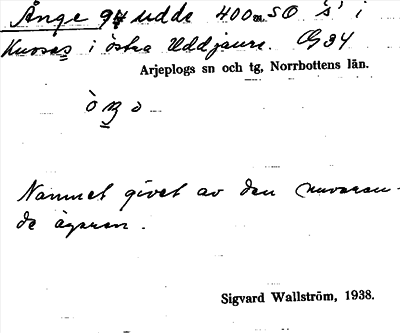 Ånge udde 400 m SO "s" i
Kurras i östra Uddjaure. G 34
Arjeplogs sn och tg, Norrbottens län.
Namnet givet av den nuvaran-
de ägaren.
Sigvard Wallström, 1938.